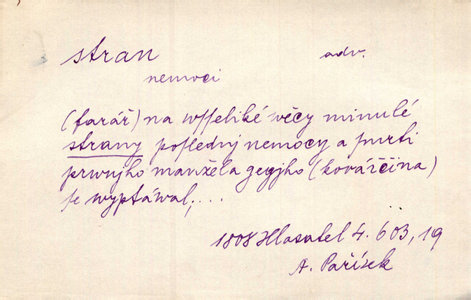 stran adv.
nemoci
(farář) na wsseliké wěcy minulé
strany poslednj nemocy a smrti
prwnjho manžela gegjho (kovářčina)
se wyptáwal;...
1808 Hlasatel 4. 603, 19
A. Pařízek